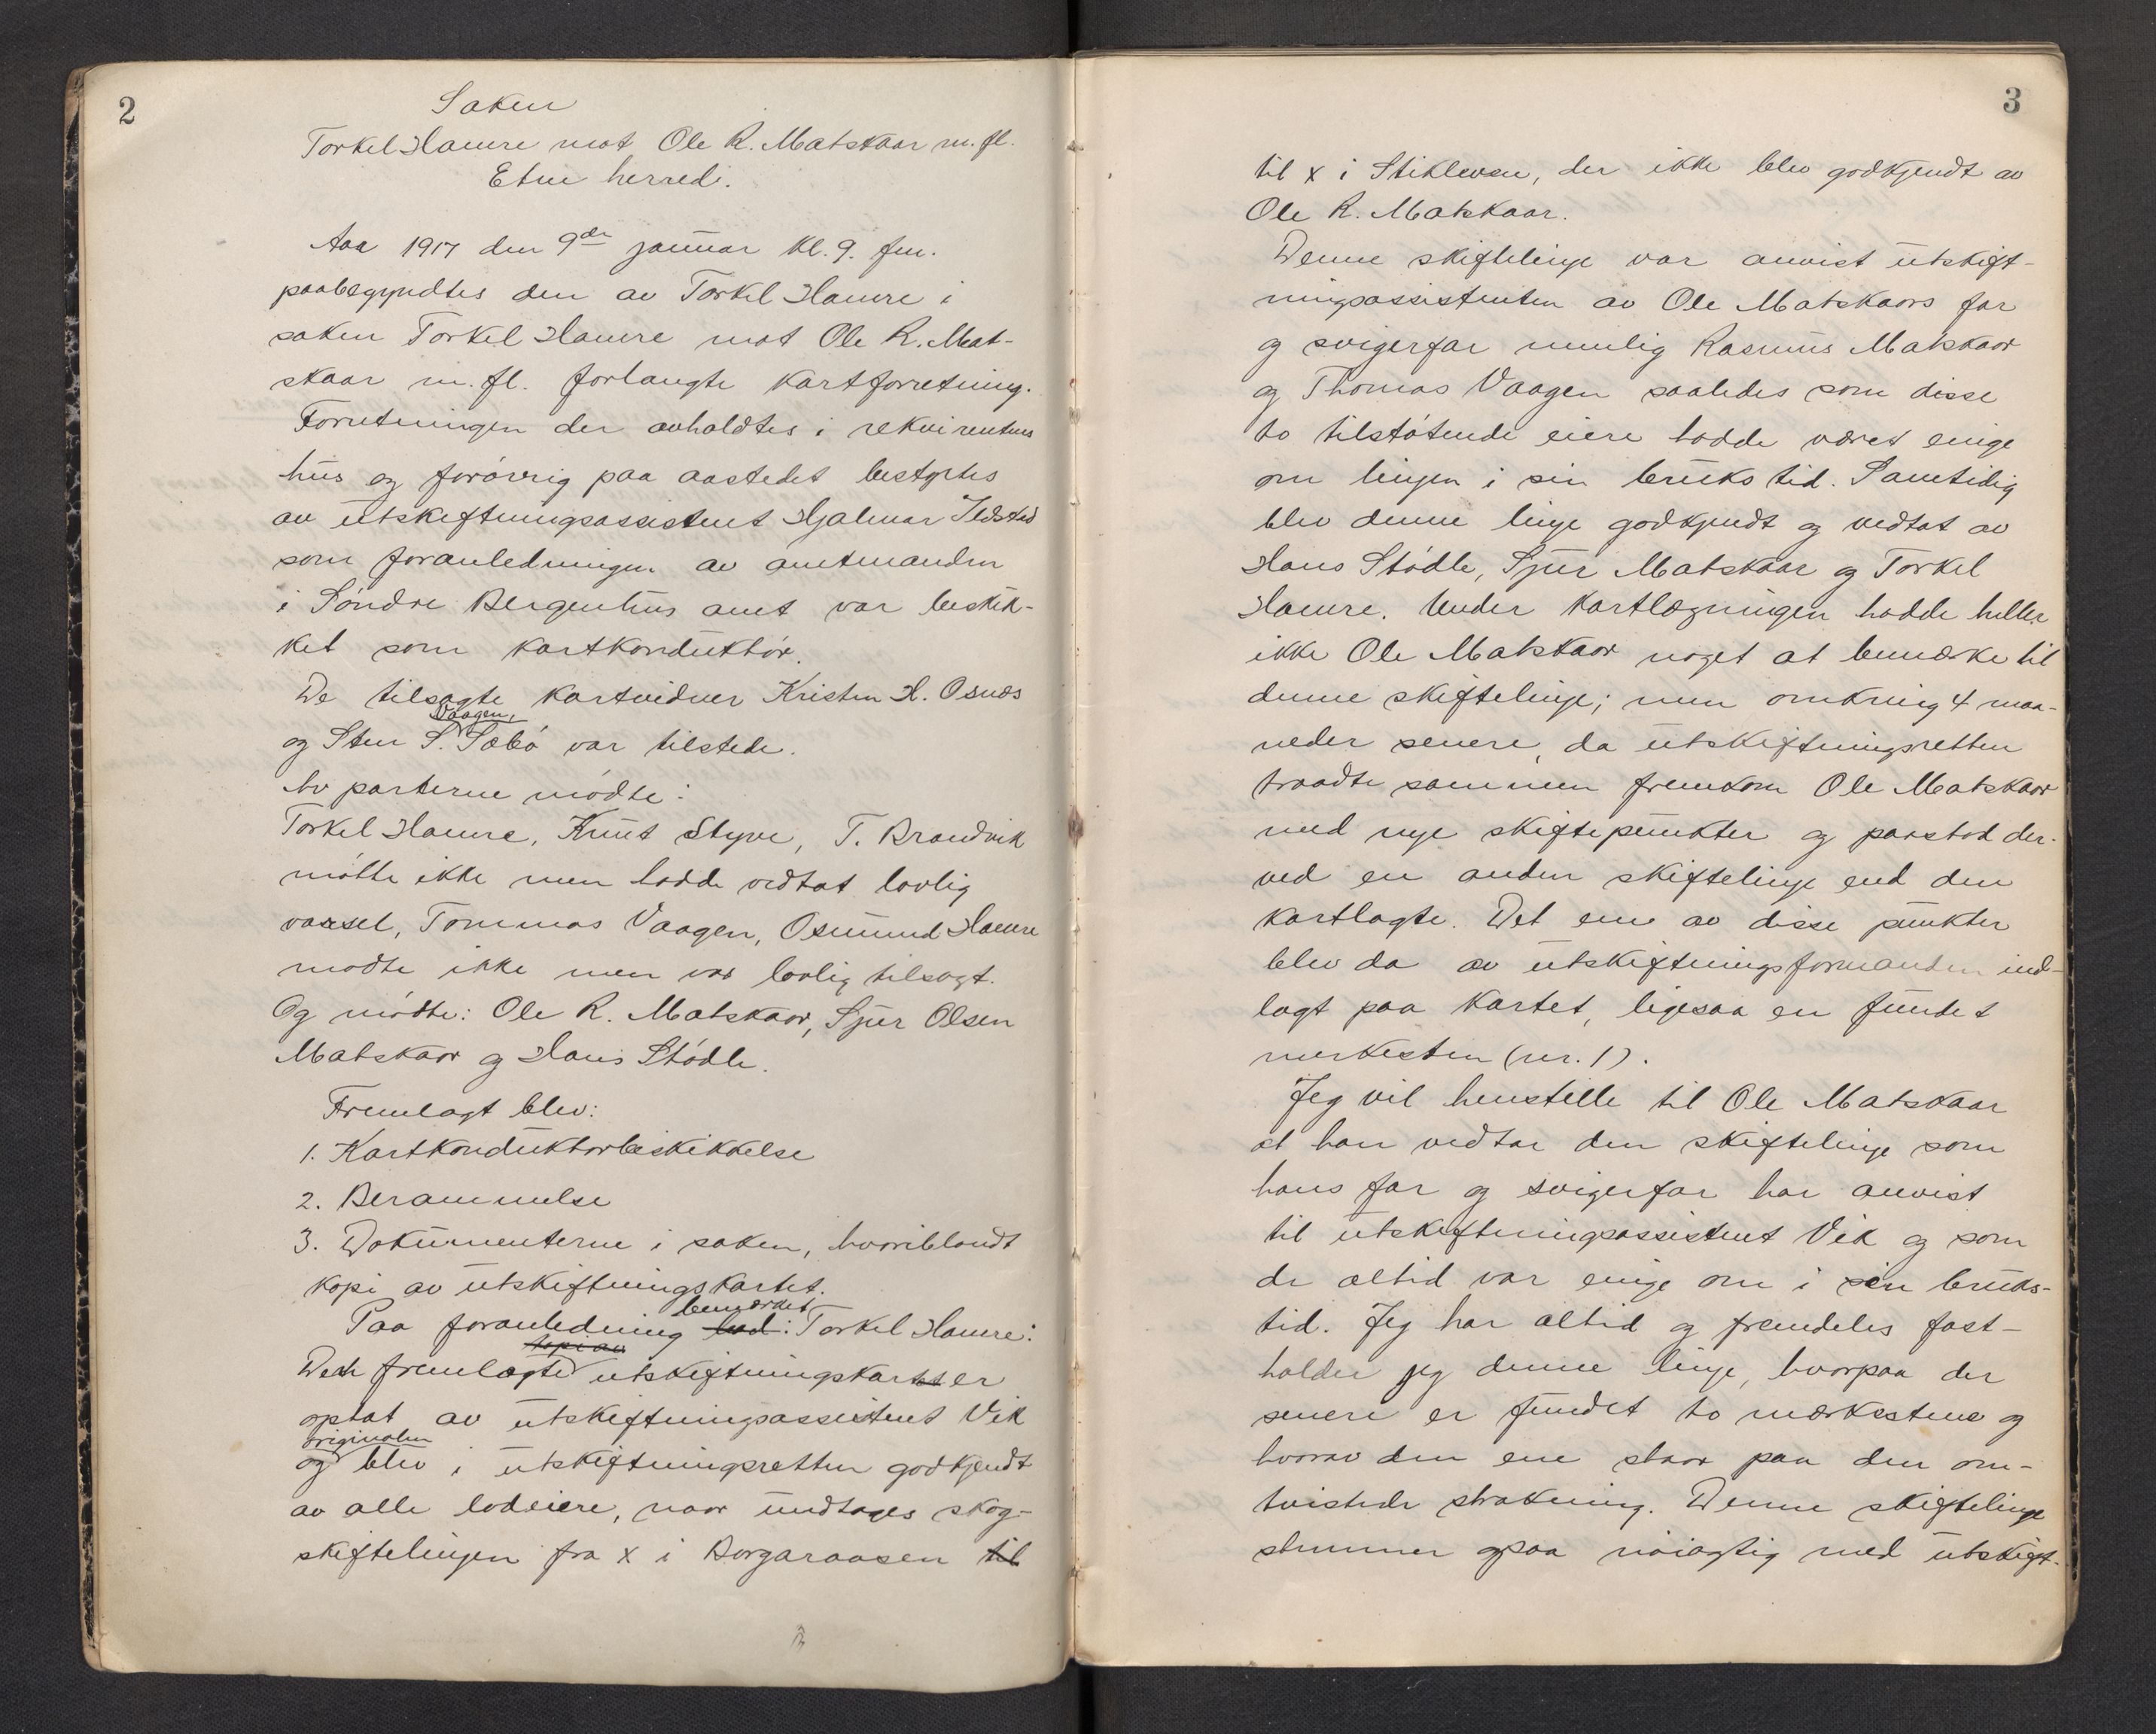 2
Saken
Torkel Hamre mot Ole R. Matskaar m. fl.
Etne herred.
Aar 1917 den 9de januar kl. 9. fm.
paabegyndtes den av Torkel Hamre i
saken Torkel Hamre mot Ole R. Mat-
skaar m. fl. forlangte kartforretning.
Forretningen der avholdtes i rekvirentens
hus og forøvrig paa aastedet bestyrtes
av utskiftningsassistent Hjalmar Ildstad
som foranledningen av amtmanden
i Søndre Bergenhus amt var beskik-
ket som kartkonduktør.
De tilsagte kartvidner Kristen H. Osnes
Vaagen,
og Sten S. Sæbø var tilstede.
Av parterne mødte:
Torkel Hamre, Knut Styve, T. Brandvik
møtte ikke men hadde vedtat lovlig
varsel, Tommas Vaagen, Osmund Hamre
mødte ikke men var lovlig tilsagt.
Og mødte: Ole R. Matskaar, Sjur Olsen
Matskaar og Hans Stødle.
Fremlagt blev:
1. Kartkonduktørbeskikkelse
2. Berammelse
3. Dokumenterne i saken, hvoriblandt
kopi av utskiftningskartet.
bemærket
Paa foranledning lod: Torkel Hamre:
kopi av
Det fremlagte utskiftningskart er
optat av utskiftningsassistent Vik
originalen
og blev i utskiftningsretten godkjendt
av alle lodeiere, naar undtages skog-
skiftelinjen fra x i Borgaraasen til
3
til x i Stiklevsen, der ikke blev godkjendt av
Ole R. Matskaar.
Denne skiftelinje var anvist utskift-
ningsassistenten av Ole Matskaars far
og svigerfar nemlig Rasmus Matskaar
og Thomas Vaagen saaledes som disse
to tilstøtende eiere hadde været enige
om linjen i sin brukstid. Samtidig
blev denne linje godkjendt og vedtat av
Hans Stødle, Sjur Matskaar og Torkel
Hamre. Under kartlægningen hadde heller
ikke Ole Matskaar noget at bemærke til
denne skiftelinje; men omkring 4 maa-
neder senere, da utskiftningsretten
traadte sammen fremkom Ole Matskaar
med nye skiftepunkter og paastod der-
ved en anden skiftelinje end den
kartlagte. Det ene av disse punkter
blev da av utskiftningsformanden ind-
lagt paa kartet, ligesaa en fundet
merkesten (nr. 1).
Jeg vil henstille til Ole Matskaar
at han vedtar den skiftelinje som
hans far og svigerfar har anvist
til utskiftningsassistent Vik og som
de altid var enige om i sin bruks-
tid. Jeg har altid og fremdeles fast-
holder jeg denne linje, hvorpaa der
senere er fundet to merkestene og
hvorav den ene staar paa den om-
tvistede strækning. Denne skiftelinje
stemmer ogsaa nøiagtig med utskift-